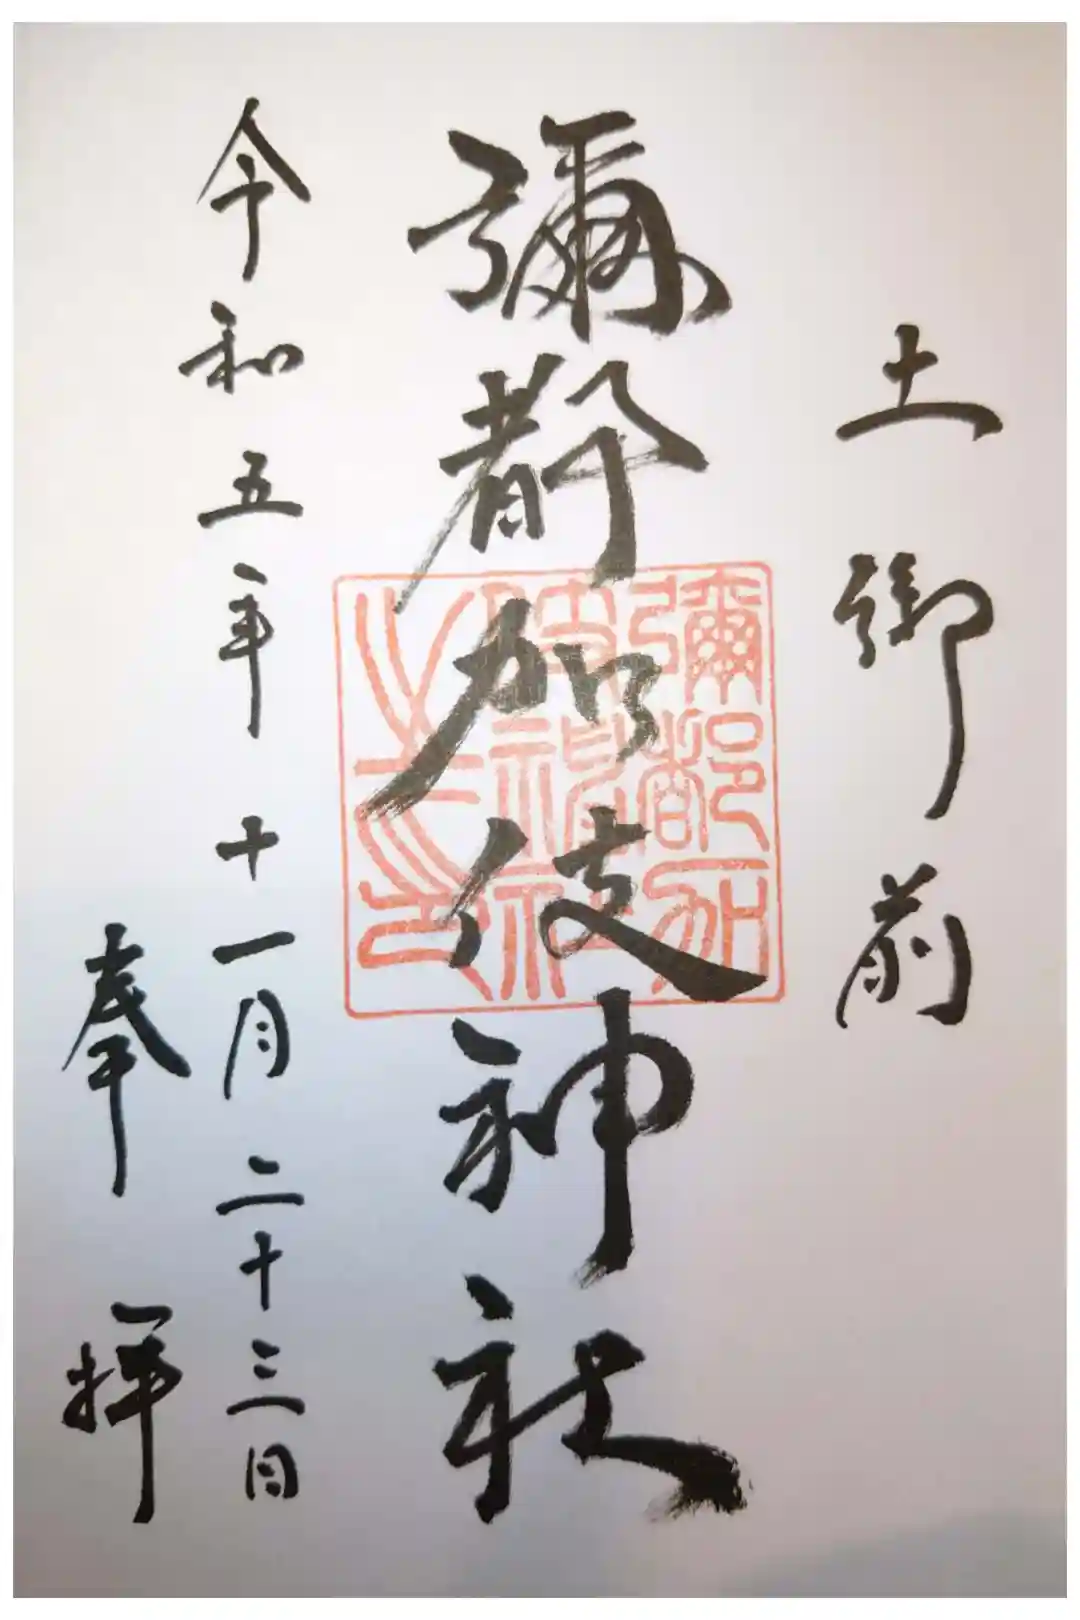 土御前
彌都加伎神社
彌都加
伎神社
之印
令和五年十一月二十三日
奉拝